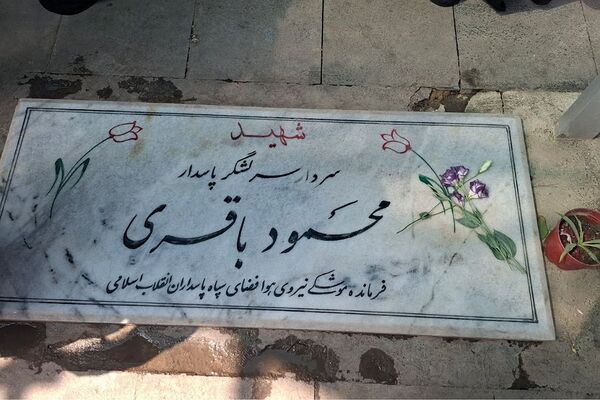 شهید
سردار سرلشگر پاسدار
محمود باقری
فرمانده موشکی نیروی هوافضای سپاه پاسداران انقلاب اسلامی